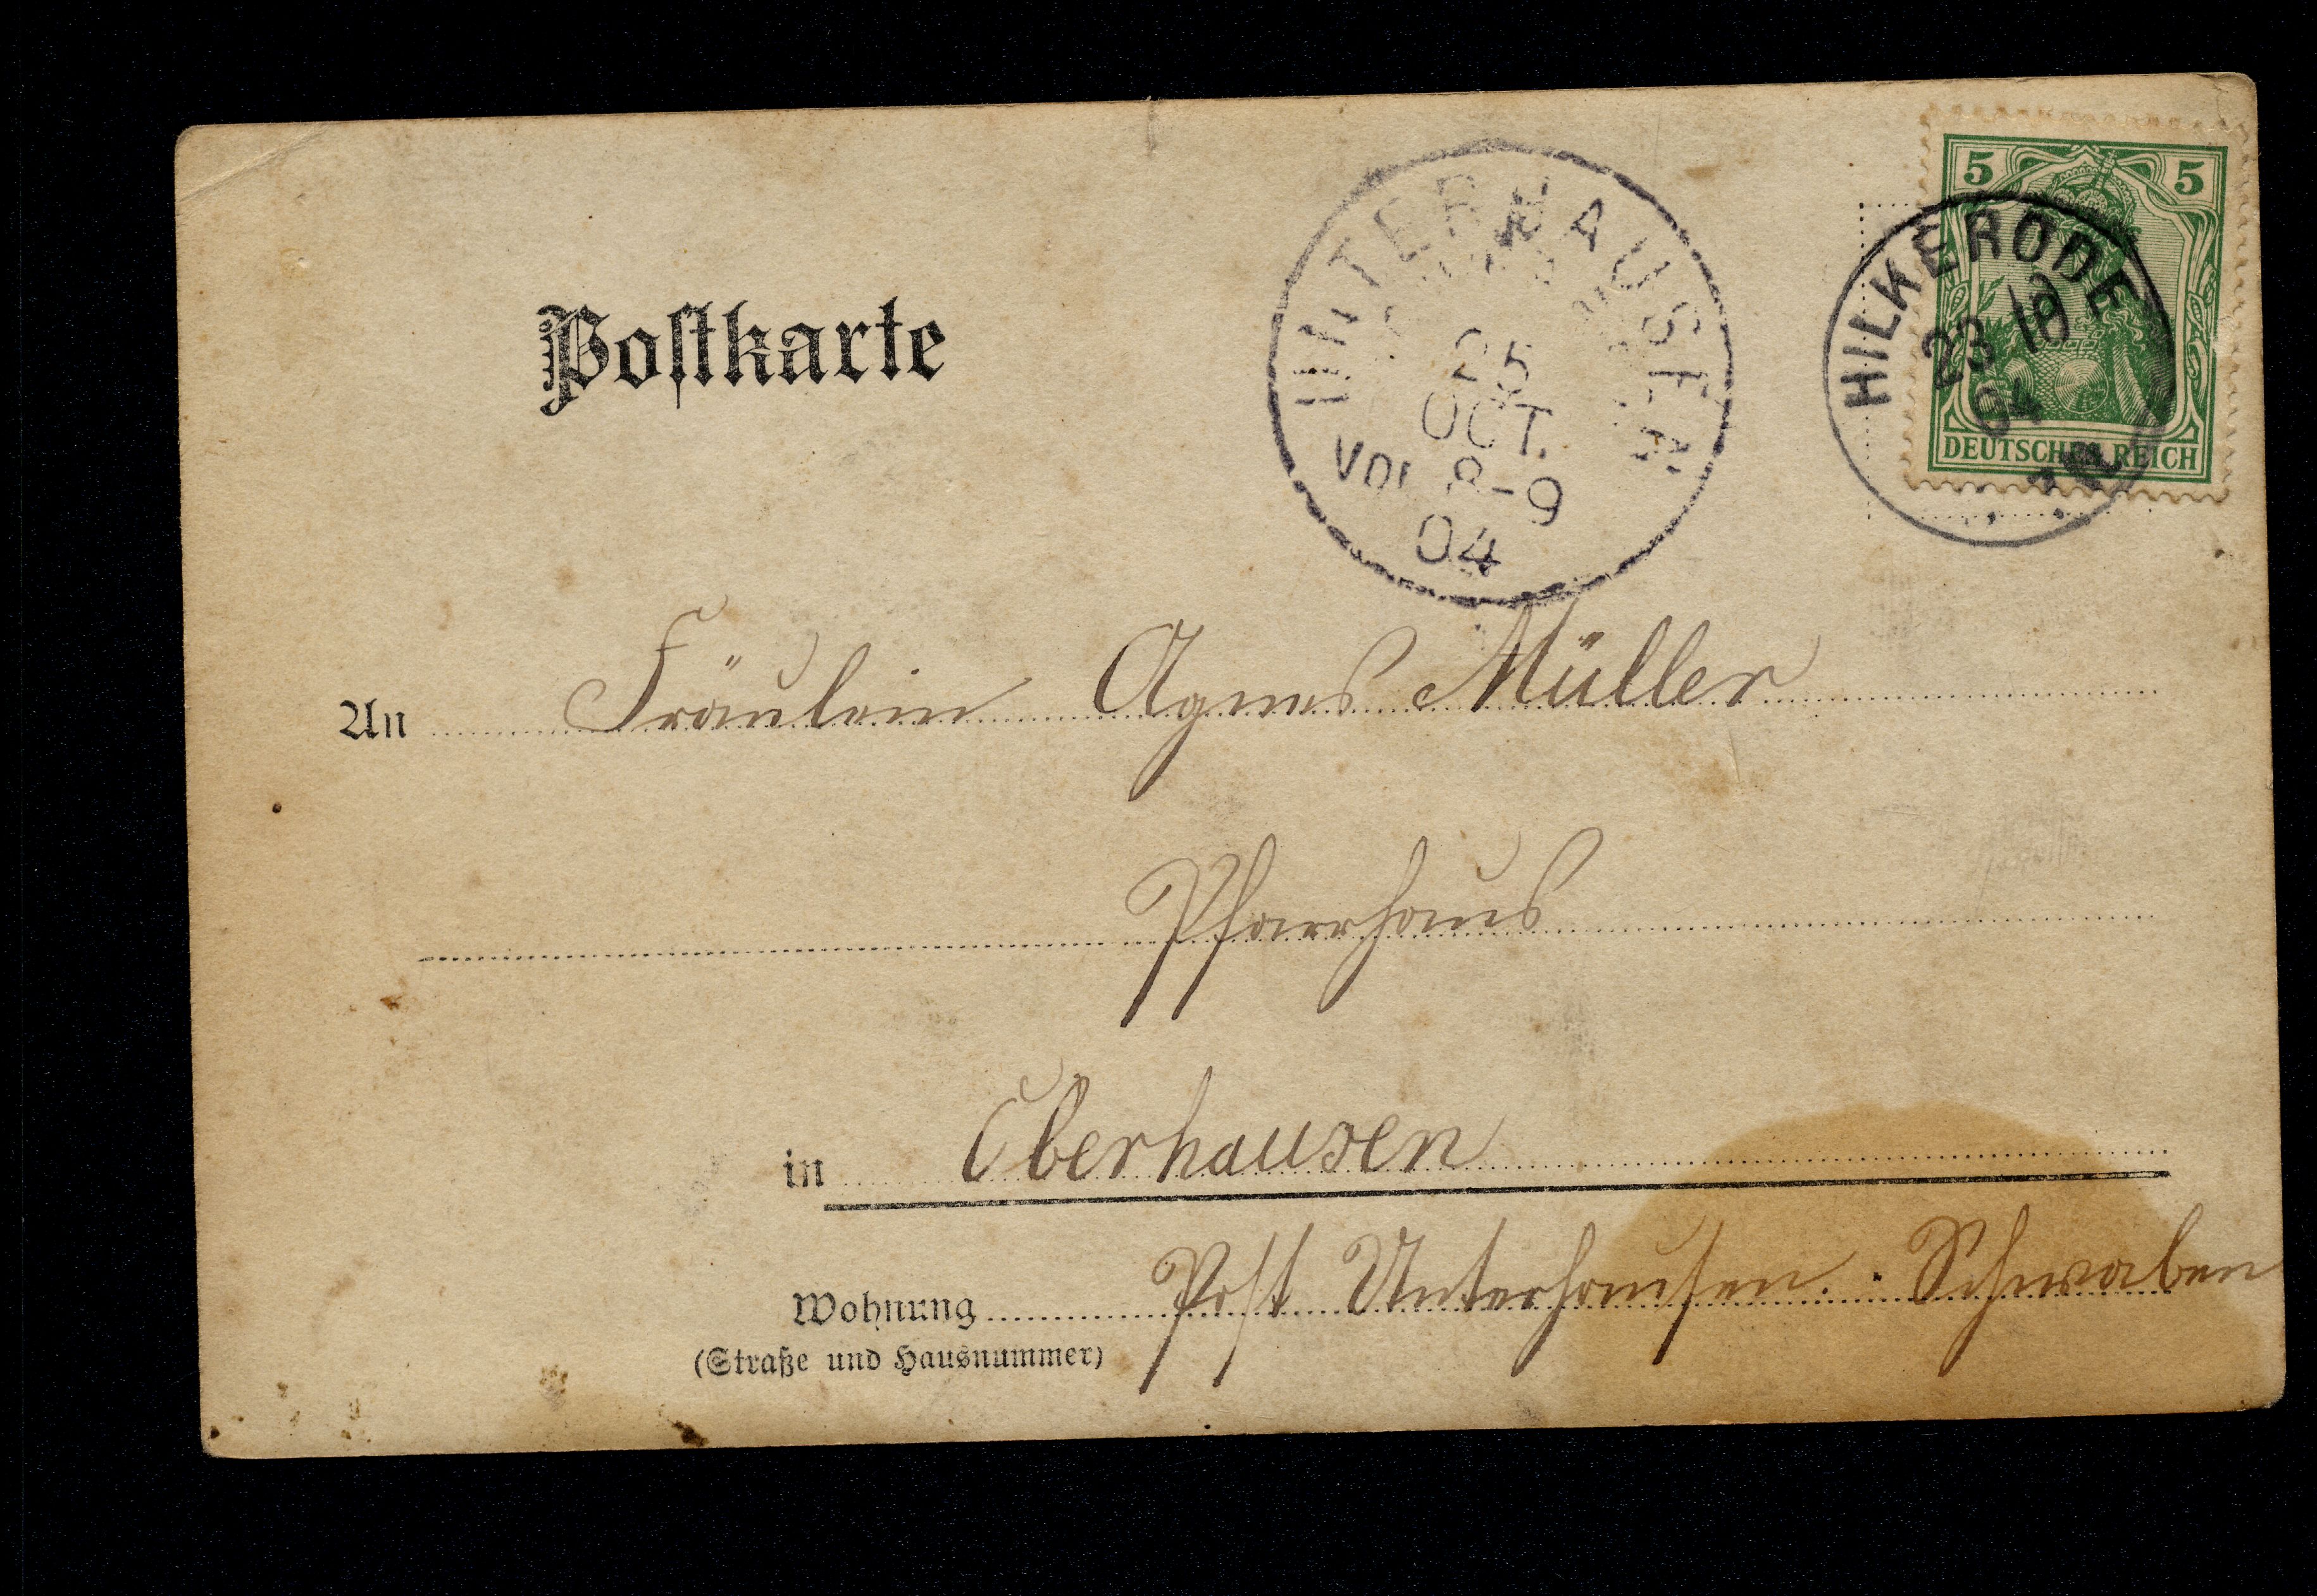 5 5
HILKERODE
23 10
04
DEUTSCHES REICH
UNTERHAUSEN
25
OCT.
Vor 8-9
04
Postkarte
An Fräulein Agnes Müller
Pfarrhaus
in Oberhausen
Wohnung Post Unterhausen. Schwaben
(Straße und Hausnummer)